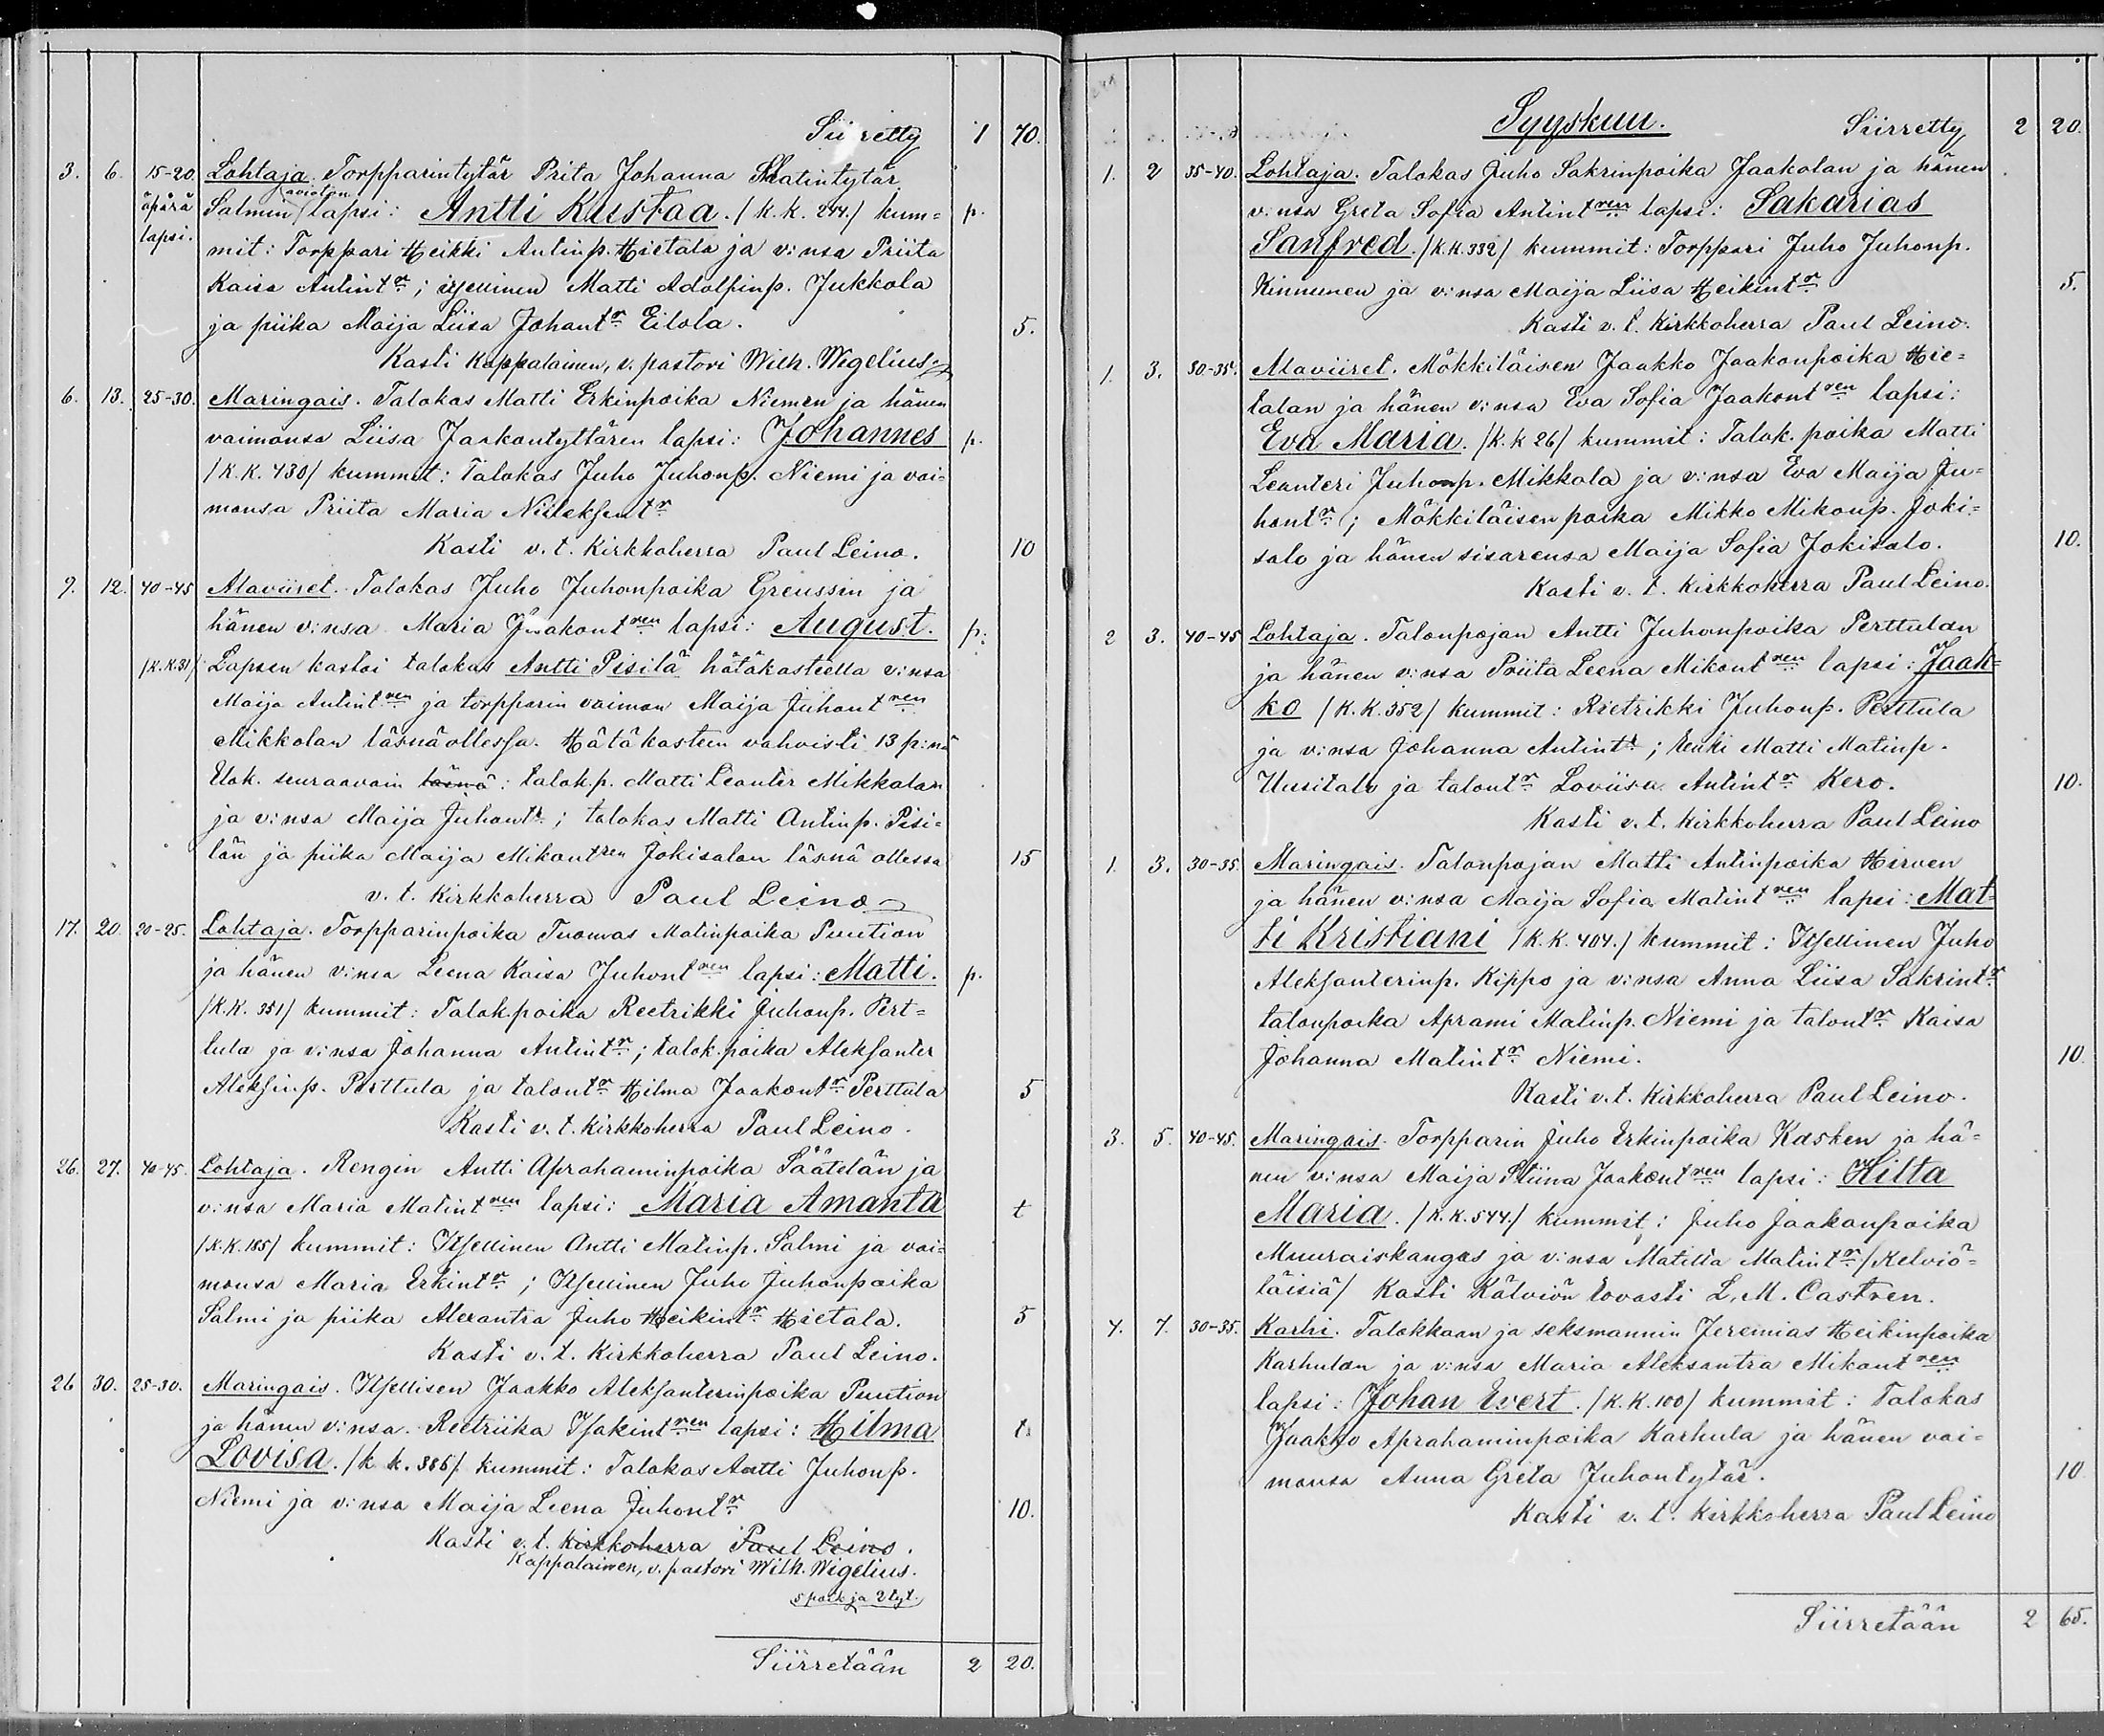 Siirretty 1 70.
3. 6. 15-20. Lohtaja. Torpparintytär Prita Johanna Matintytär
äpärä Salmin avioton lapsi: Antti Kustaa. /K.K. 244./ kum= p.
lapsi. mit: Torppari Heikki Antinp. Hietala ja v:nsa Priita
Kaisa Antintr; itsellinen Matti Adolfinp. Jukkola
ja piika Maija Liisa Johantr Eilola. 5.
Kasti Kappalainen, v. pastori Wilh. Wegelius
6. 13. 25-30. Maringais. Talokas Matti Erkinpoika Niemen ja hänen
vaimonsa Liisa Jaakontyttären lapsi: Johannes p.
/K.K. 430/ kummit: Talokas Juho Juhonp. Niemi ja vai=
monsa Priita Maria
Kasti v.t. Kirkkoherra Paul Leino. 10
9. 12. 40-45 Alaviiret. Talokas Juho Juhonpoika Greussin ja
hänen v:nsa Maria Jaakontren lapsi: August. p.
/K.K.31/ Lapsen kastoi talokas Antti Pisilä hätäkasteella v:nsa
Maija Antintren ja torpparin vaimon Maija Juhontren
Mikkolan läsnäollessa. Hätäkasteen vahvisti 13 p:nä
Elok. seuraavain läsnä: talok.p. Matti Leanter Mikkolan
ja v:nsa Maija Juhontr.; talokas Matti Antinp. Pisi=
län ja piika Maija Mikontren Jokisalon läsnä ollessa 15
v.t. Kirkkoherra Paul Leino
17. 20. 20-25. Lohtaja. Torpparinpoika Tuomas Matinpoika Puution
ja hänen v:nsa Leena Kaisa Juhontren lapsi: Matti. p.
/K.K. 351/ kummit: Talok.poika Reetrikki Juhonp. Pert=
tula ja v:nsa Johanna Antintr; talok.poika Aleksanter
Aleksinp. Perttula ja talontr Hilma Jaakontr Perttula 5
Kasti v.t. Kirkkoherra Paul Leino.
26. 27. 40-45. Lohtaja. Rengin Antti Aprahaminpoika Säätelän ja
v:nsa Maria Matintren lapsi: Maria Amanta t
/K.K. 185/ kummit: Itsellinen Antti Matinp. Salmi ja vai=
monsa Maria Erkintr; Itsellinen Juho Juhonpoika
Salmi ja piika Alexantra Juho Heikintr Hietala. 5
Kasti v.t. Kirkkoherra Paul Leino.
26 30. 25-30. Maringais. Itsellisen Jaakko Aleksanterinpoika Puution
ja hänen v:nsa Reetriika Isakintren lapsi: Hilma t.
Lovisa. /K.K. 386/. kummit: Talokas Antti Juhonp.
Niemi ja v:nsa Maija Leena Juhontr 10.
Kasti v.t. Kirkkoherra Paul Leino.
Kappalainen, v. pastori Wilh. Wigelius.
5 poik. ja 2 tyt.
Siirretään 2 20.
Syyskuu. Siirretty 2 20.
1. 2 35-40. Lohtaja. Talokas Juho Sakrinpoika Jaakolan ja hänen
v:nsa Greta Sofia Antintren lapsi: Sakarias
Sanfred. /K.K. 332/ kummit: Torppari Juho Juhonp.
Kinnunen ja v:nsa Maija Liisa Heikintr 5.
Kasti v.t. Kirkkoherra Paul Leino.
1. 3. 30-35. Alaviiret. Mökkiläisen Jaakko Jaakonpoika Hie=
talan ja hänen v:nsa Eva Sofia Jaakontren lapsi:
Eva Maria. /K.K 26/ kummit: Talok. poika Matti
Leanteri Juhonp. Mikkola ja v:nsa Eva Maija Ju=
hontr; Mökkiläisen poika Mikko Mikonp. Joki=
salo ja hänen sisarensa Maija Sofia Jokisalo. 10.
Kasti v.t. Kirkkoherra Paul Leino.
2 3. 40-45 Lohtaja. Talonpojan Antti Juhonpoika Perttulan
ja hänen v:nsa Priita Leena Mikontren lapsi: Jaak=
ko /K.K. 352/ kummit: Rietrikki Juhonp. Perttula
ja v:nsa Johanna Antintr; renki Matti Matinp.
Uusitalo ja talontr Loviisa Antintr Kero. 10.
Kasti v.t. Kirkkoherra Paul Leino
1. 3. 30-35. Maringais. Talonpojan Matti Antinpoika Hirven
ja hänen v:nsa Maija Sofia Matintren lapsi: Mat=
ti Kristiani /K.K. 404./ kummit: Itsellinen Juho
Aleksanterinp. Kippo ja v:nsa Anna Liisa Sakrintr
talonpoika Aprami Matinp. Niemi ja talontr Kaisa
Johanna Matintr Niemi. 10.
Kasti v.t. Kirkkoherra Paul Leino.
3. 5. 40-45. Maringais. Torpparin Juho Erkinpoika Kasken ja hä=
nen v:nsa Maija Stiina Jaakontren lapsi: Hilta
Maria. /K.K. 544./ kummit: Juho Jaakonpoika
Muuraiskangas ja v:nsa Matilta Matintr /Kelviö=
läisiä/ Kasti Kälviön rovasti L. M. Castren.
4. 7. 30-35. Karhi. Talokkaan ja seksmannin Jeremias Heikinpoika
Karhulan ja v:nsa Maria Aleksantra Mikontren
lapsi: Johan Evert. /K.K. 100/ kummit: Talokas
Jaakko Aprahaminpoika Karhula ja hänen vai=
monsa Anna Greta Juhontytär. 10
Kasti v.t. Kirkkoherra Paul Leino
Siirretään 2 65.